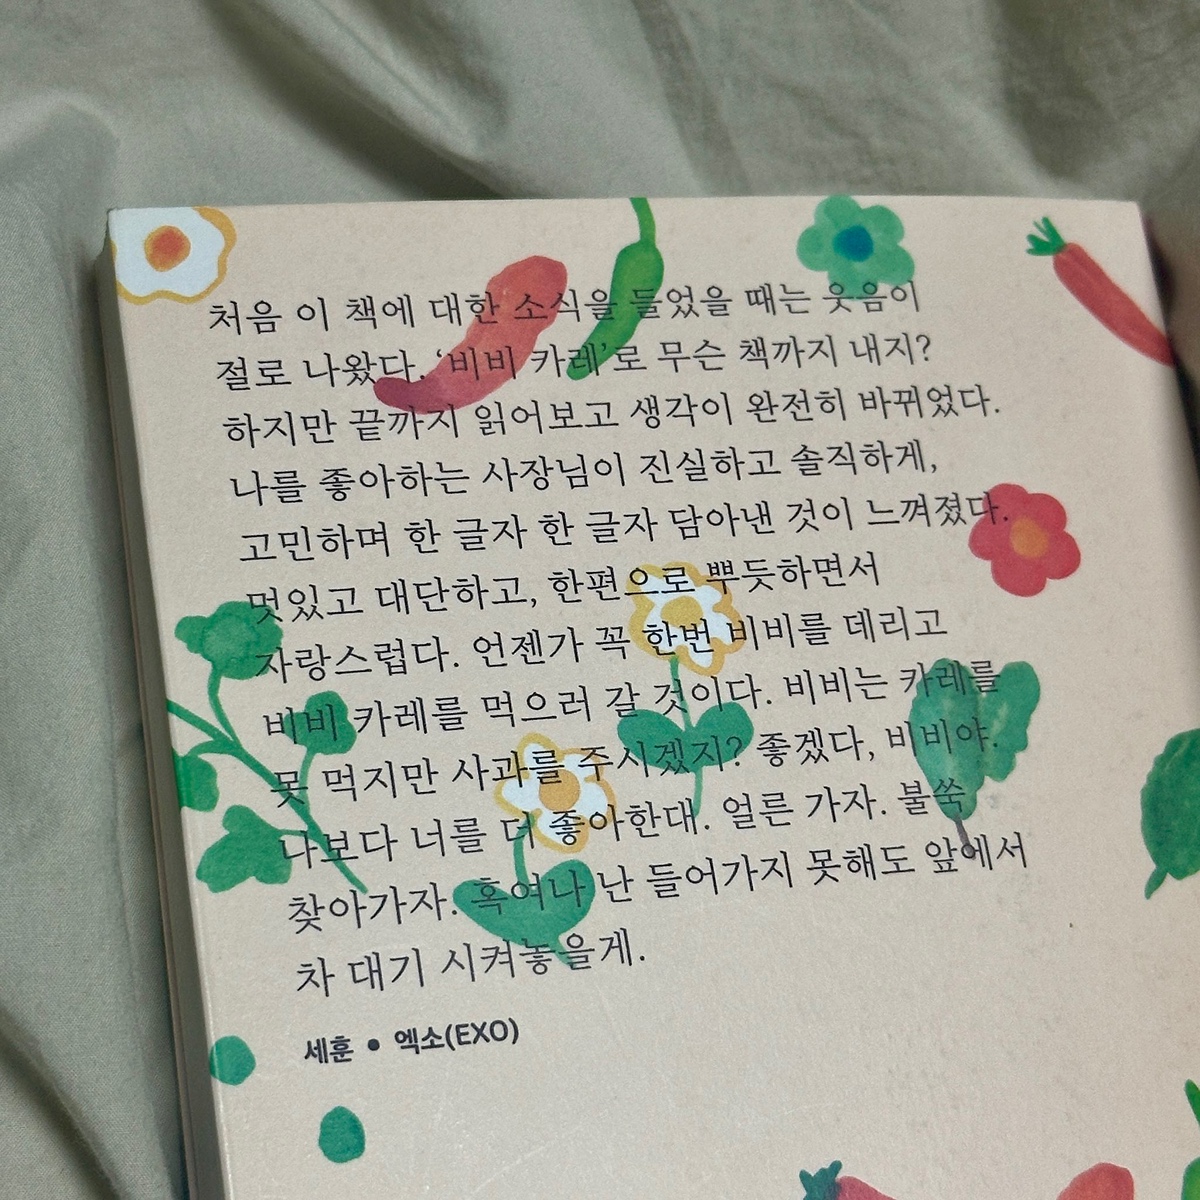 처음 이 책에 대한 소식을 들었을 때는 웃음이
절로 나왔다. ‘비비 카레’로 무슨 책까지 내지?
하지만 끝까지 읽어보고 생각이 완전히 바뀌었다.
나를 좋아하는 사장님이 진실하고 솔직하게,
고민하며 한 글자 한 글자 담아낸 것이 느껴졌다.
멋있고 대단하고, 한편으로 뿌듯하면서
자랑스럽다. 언젠가 꼭 한번 비비를 데리고
비비 카레를 먹으러 갈 것이다. 비비는 카레를
못 먹지만 사과를 주시겠지? 좋겠다, 비비야.
나보다 너를 더 좋아한대. 얼른 가자. 불쑥
찾아가자. 혹여나 난 들어가지 못해도 앞에서
차 대기 시켜놓을게.
세훈 • 엑소(EXO)